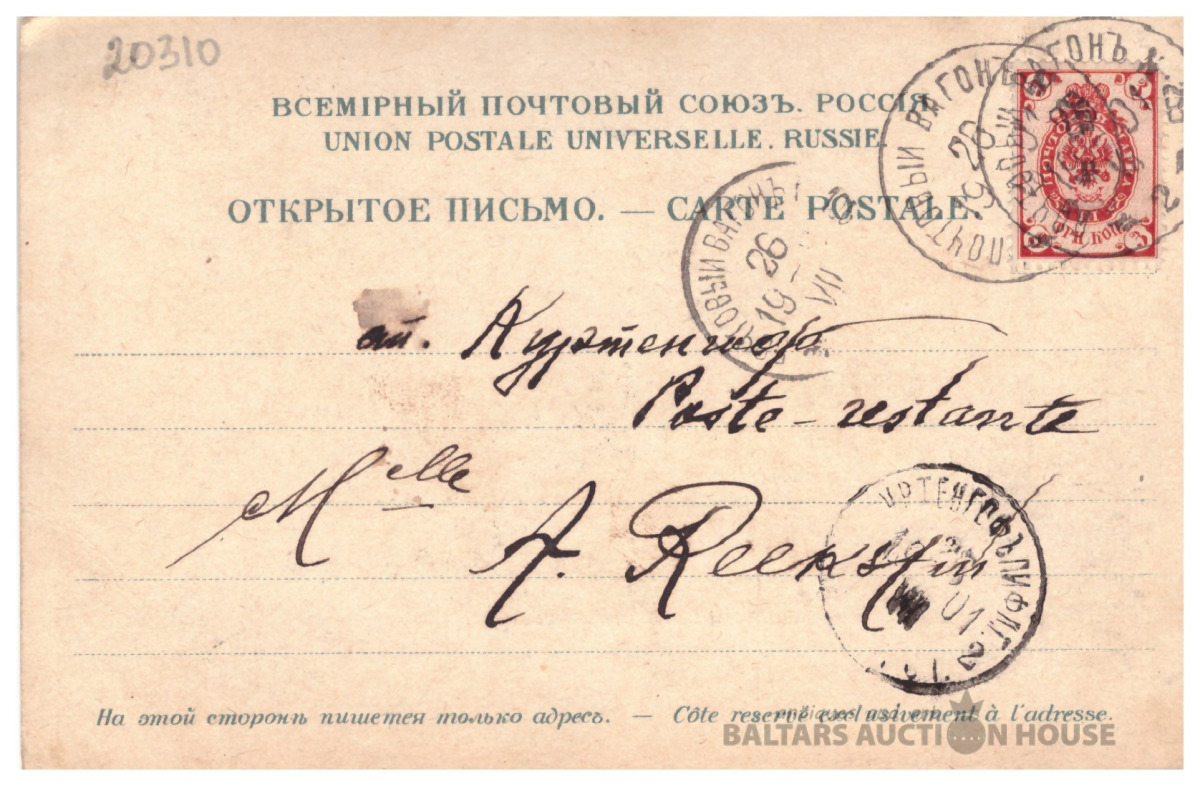 20310
ВСЕМІРНЫЙ ПОЧТОВЫЙ СОЮЗЪ. РОССІЯ.
UNION POSTALE UNIVERSELLE. RUSSIE.
ОТКРЫТОЕ ПИСЬМО. — CARTE POSTALE.
ПОЧТОВЫЙ ВАГОНЪ
20
19
ВАГОНЪ
ОВЫЙ ВАГОНЪ
26
19
VII
ст. Куртенгоф
Poste-restante
Mlle
A. Reekstin
УРТЕНГОФЪ ЛИФЛ. Г.
01
2
На этой сторонѣ пишется только адресъ. — Côte reservé exclusivement à l'adresse.
BALTARS AUCTION HOUSE